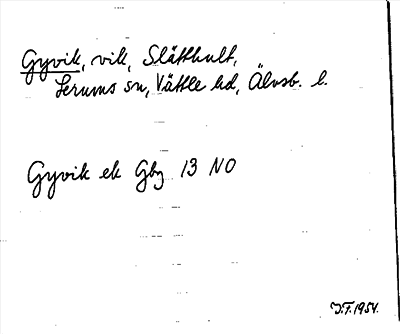 Gyvik, vik, Slätthult,
Lerums sn, Vättle hd, Älvsb. l.
Gyvik ek Gbg 13 NO
J.F. 1954.